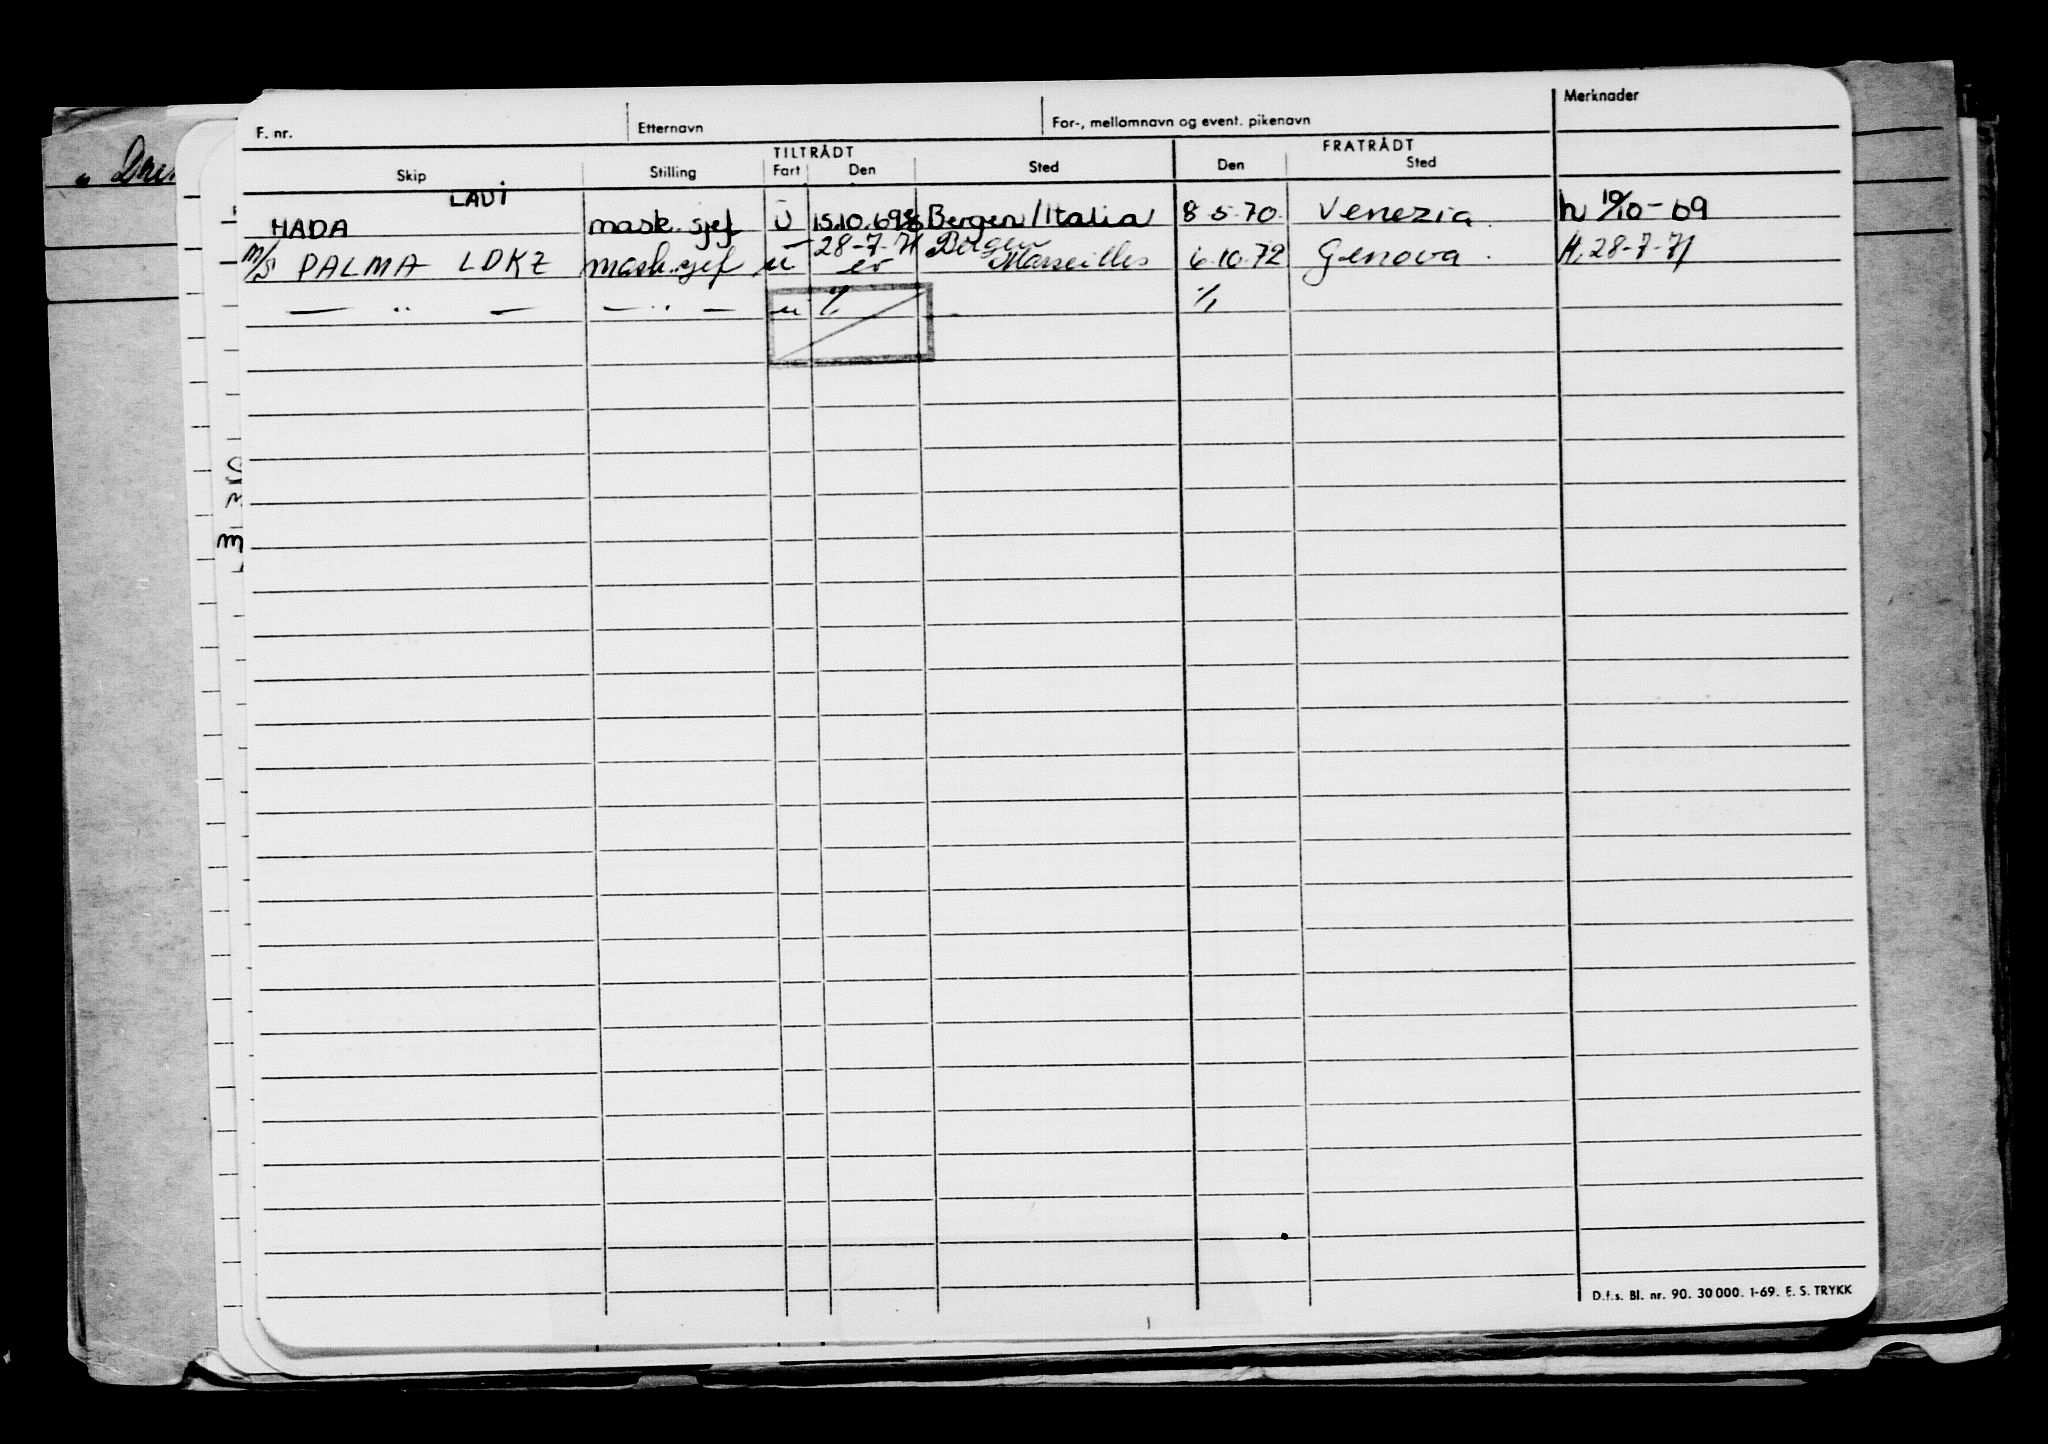 F. nr. Etternavn For-, mellomnavn og event. pikenavn Merknader
TILTRÅDT FRATRÅDT
Skip Stilling Fart Den Sted Den Sted
LAUI
HADA mask. sjef U 15.10.69 Bergen/Italia 8-5-70. Venezia. h 19/10-69
28-7-71 Bergen
M/S PALMA LDKZ mask.sjef u Marseilles 6.10.72 Genova. H. 28-7-71
— " — — " — u % %
D.f.s. Bl. nr. 90. 30 000. 1-69. E. S. TRYKK